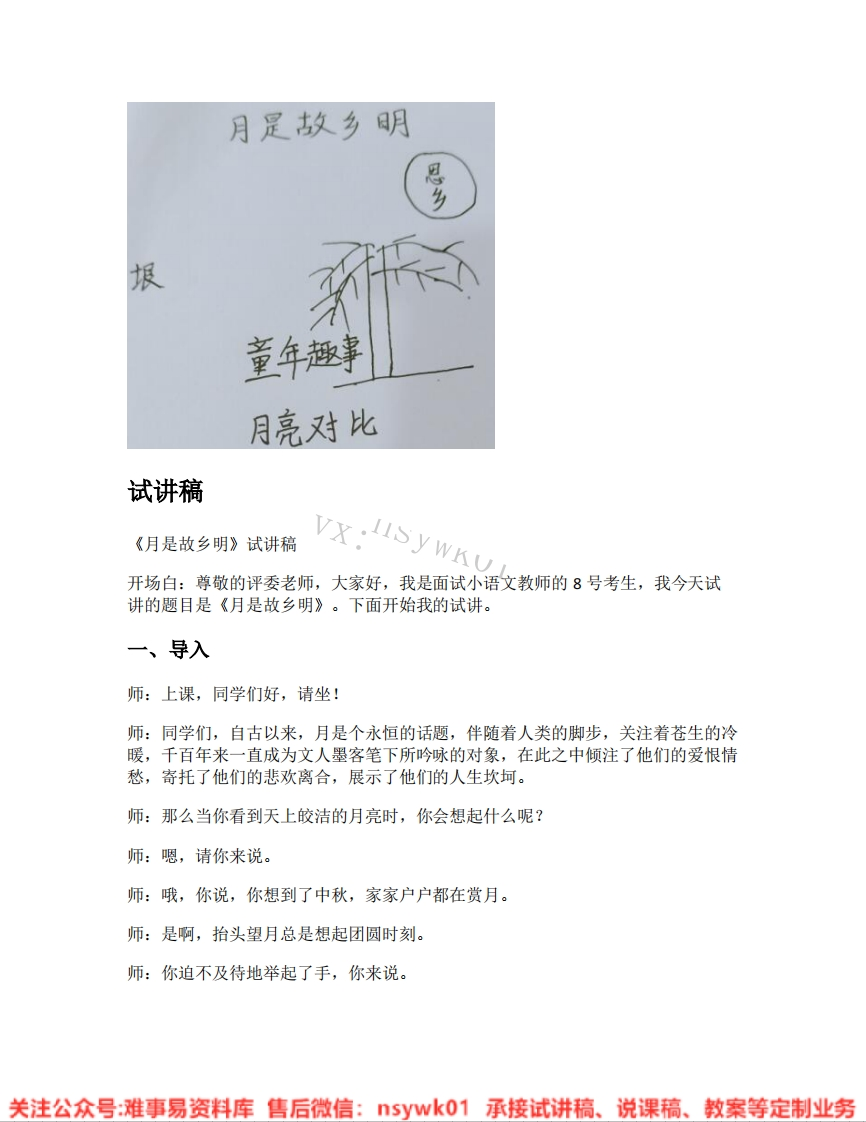 月是故乡明
思
乡
垠
童年趣事
月亮对比
试讲稿
VX:nsywk01
《月是故乡明》试讲稿
开场白：尊敬的评委老师，大家好，我是面试小语文教师的 8 号考生，我今天试
讲的题目是《月是故乡明》。下面开始我的试讲。
一、导入
师：上课，同学们好，请坐！
师：同学们，自古以来，月是个永恒的话题，伴随着人类的脚步，关注着苍生的冷
暖，千百年来一直成为文人墨客笔下所吟咏的对象，在此之中倾注了他们的爱恨情
愁，寄托了他们的悲欢离合，展示了他们的人生坎坷。
师：那么当你看到天上皎洁的月亮时，你会想起什么呢？
师：嗯，请你来说。
师：哦，你说，你想到了中秋，家家户户都在赏月。
师：是啊，抬头望月总是想起团圆时刻。
师：你迫不及待地举起了手，你来说。
关注公众号:难事易资料库 售后微信：nsywk01 承接试讲稿、说课稿、教案等定制业务